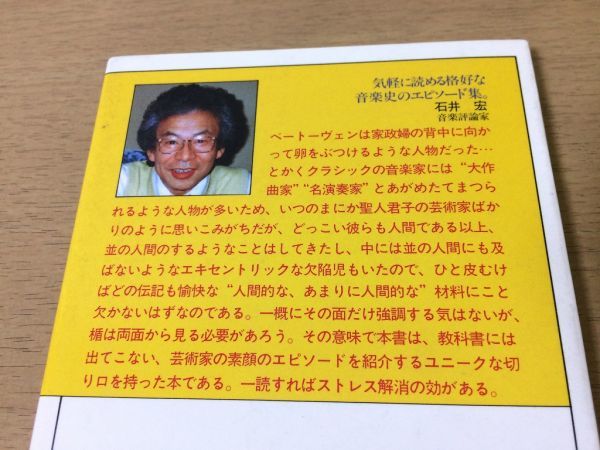 気軽に読める格好な
音楽史のエピソード集。
石井 宏
音楽評論家
ベートーヴェンは家政婦の背中に向か
って卵をぶつけるような人物だった…
とかくクラシックの音楽家には“大作
曲家”“名演奏家”とあがめたてまつら
れるような人物が多いため、いつのまにか聖人君子の芸術家ばか
りのように思いこみがちだが、どっこい彼らも人間である以上、
並の人間のするようなことはしてきたし、中には並の人間にも及
ばないようなエキセントリックな欠陥児もいたので、ひと皮むけ
ばどの伝記も愉快な“人間的な、あまりに人間的な”材料にこと
欠かないはずなのである。一概にその面だけ強調する気はないが、
楯は両面から見る必要があろう。その意味で本書は、教科書には
出てこない、芸術家の素顔のエピソードを紹介するユニークな切
り口を持った本である。一読すればストレス解消の効がある。